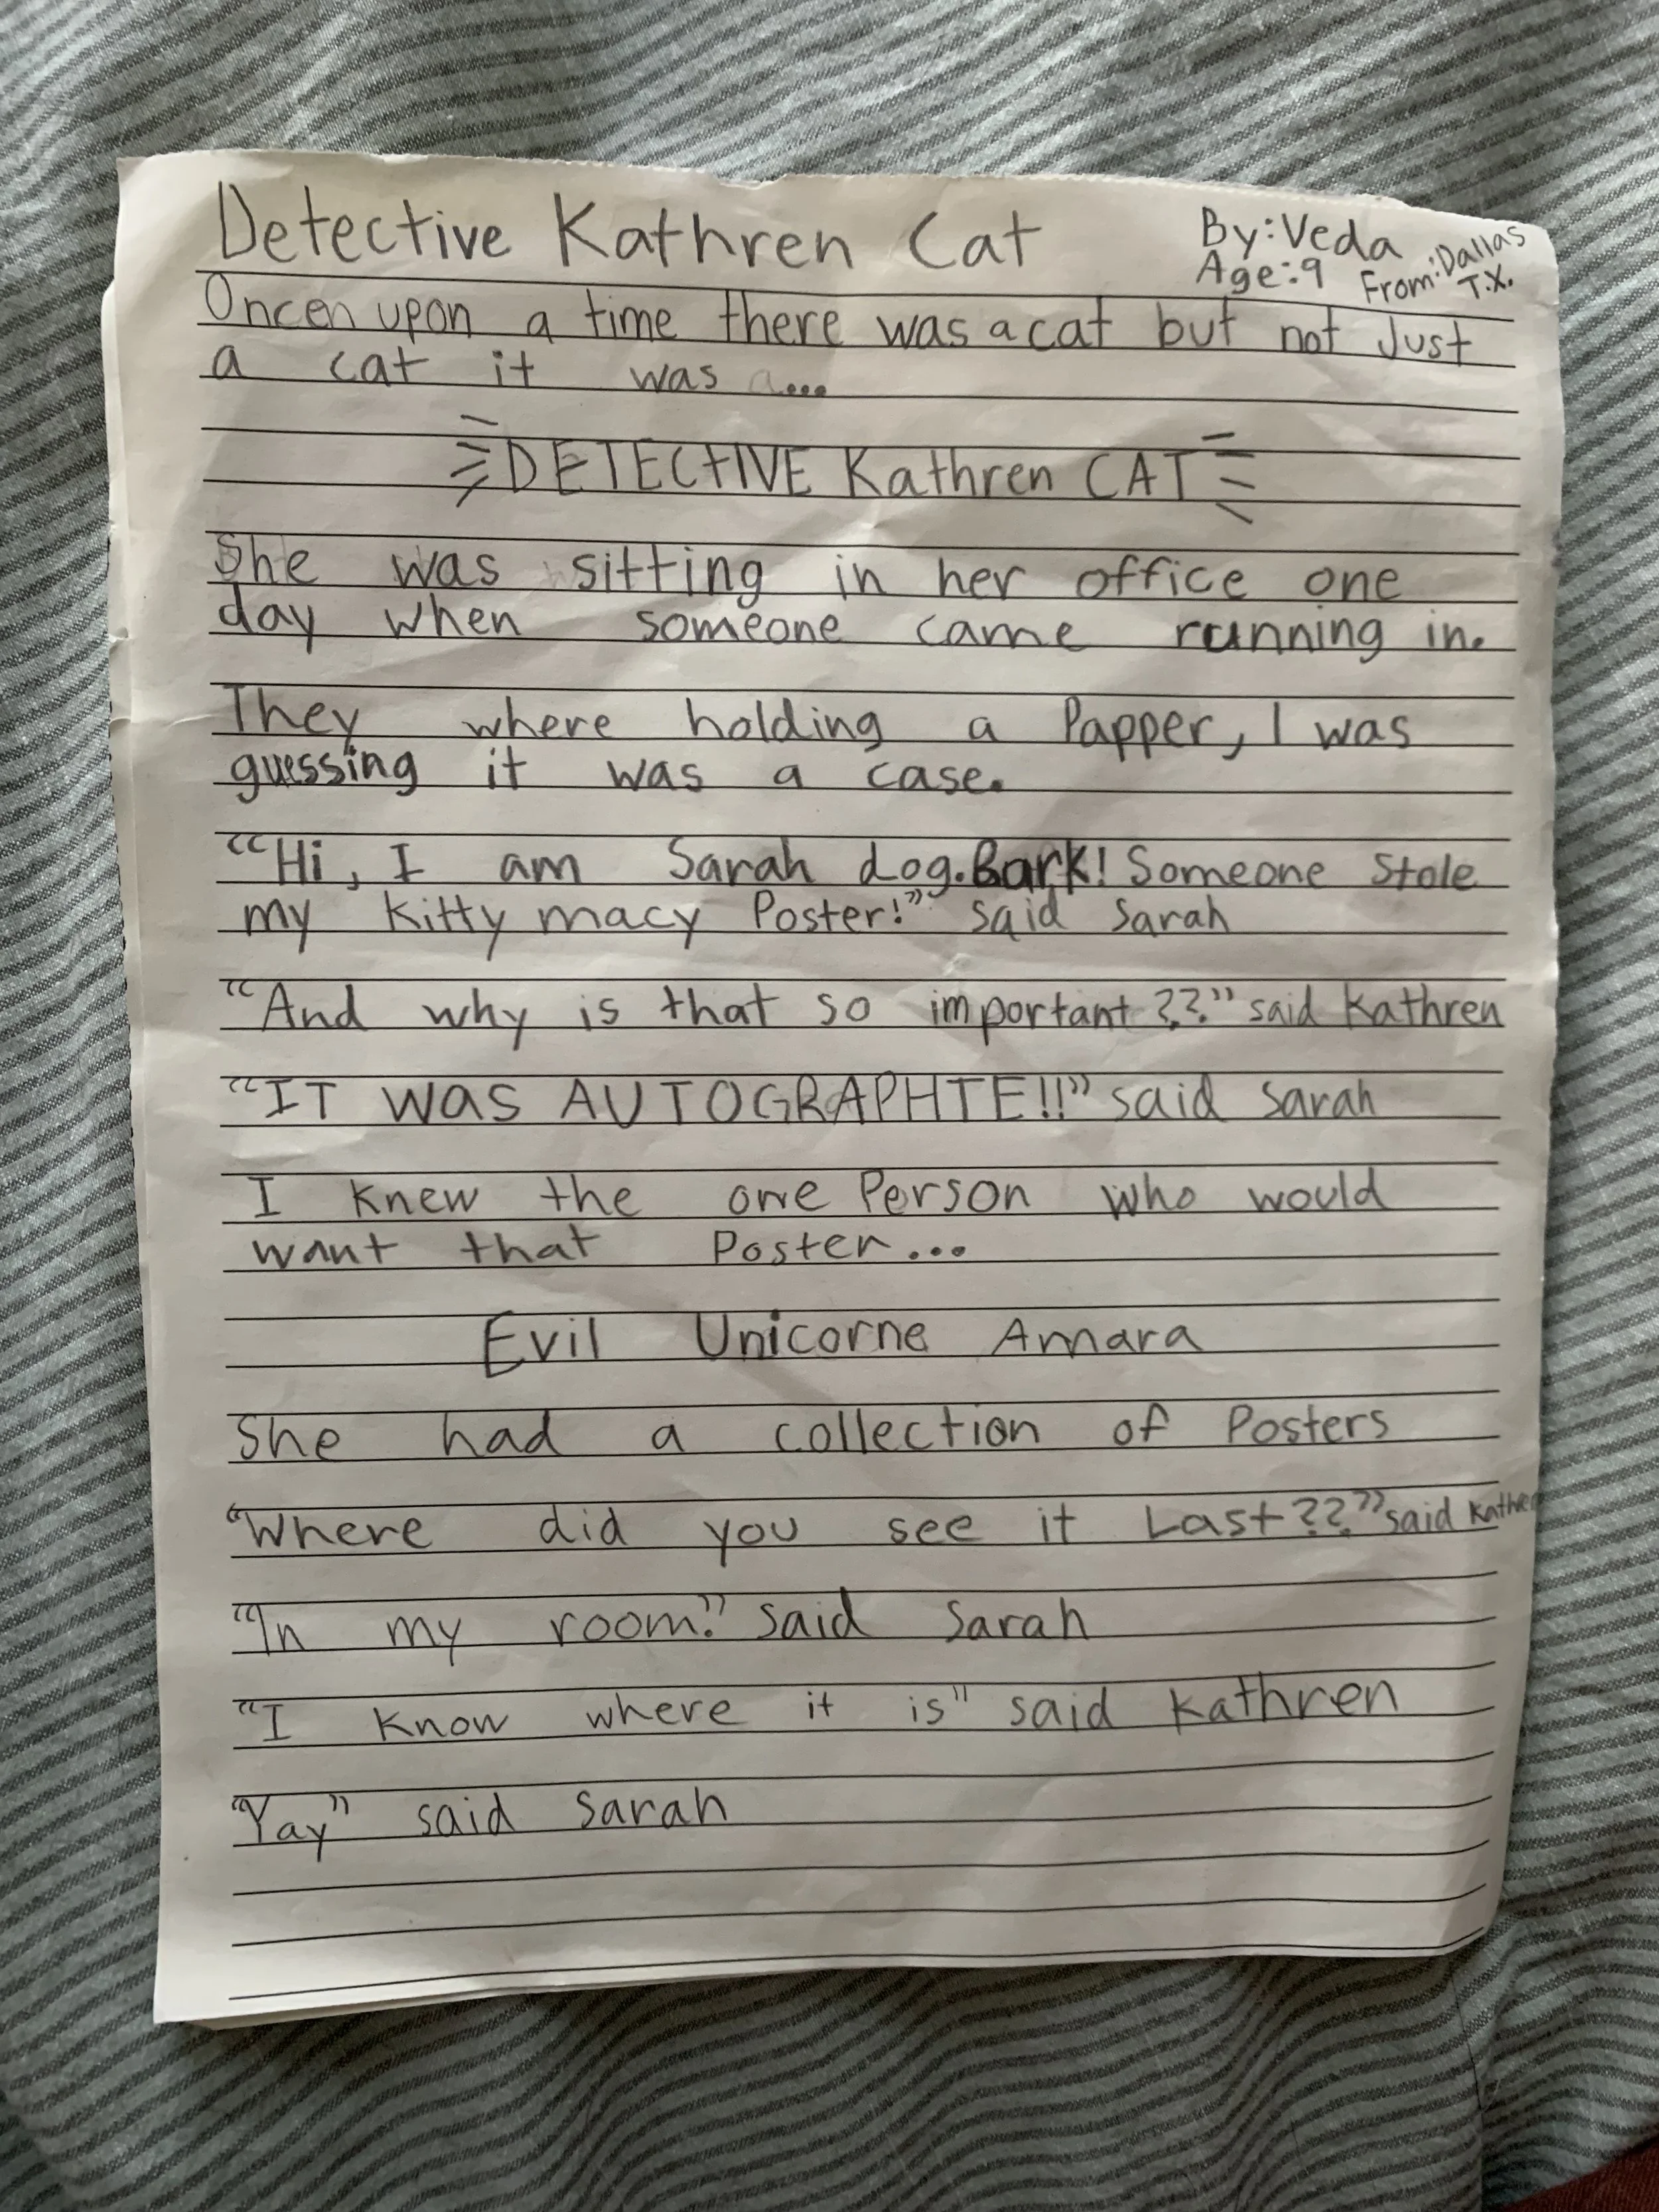 Detective Kathren Cat
By: Veda
Age: 9
From: Dallas
T.X.
Oncen upon a time there was a cat but not Just
a cat it was a...
DETECTIVE Kathren CAT
She was sitting in her office one
day when someone came running in.
They where holding a Papper, I was
guessing it was a case.
“Hi, I am Sarah dog. Bark! Someone Stole
my Kitty macy Poster!” said Sarah
“And why is that so important??” said Kathren
“IT WAS AUTOGRAPHTE!!” said Sarah
I knew the one Person who would
want that Poster...
Evil Unicorne Amara
She had a collection of Posters
“Where did you see it Last??” said Kathren
“In my room.” said Sarah
“I know where it is” said Kathren
“Yay” said Sarah